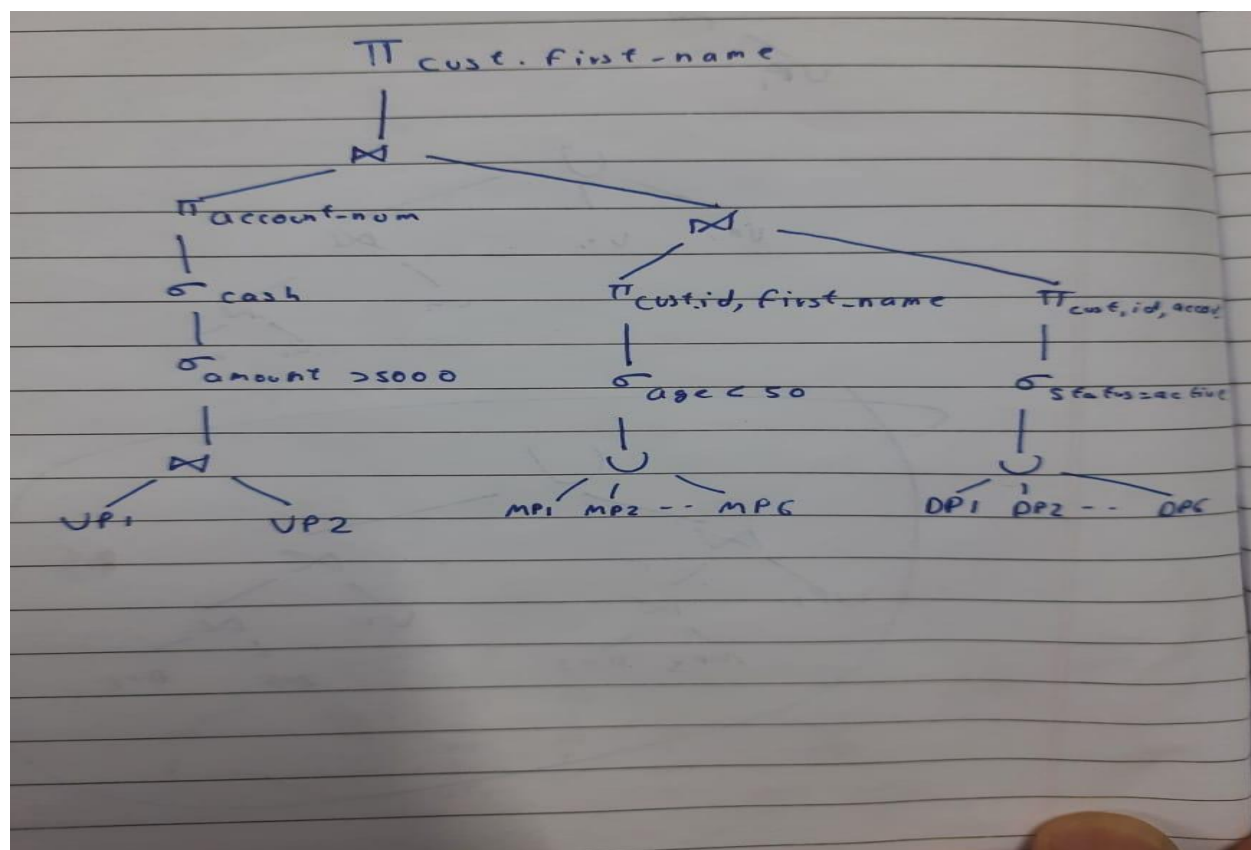 Π cust. first-name
⋈
Π account-num ⋈
σ cash Π cust.id, first_name Π cust, id, accou
σ amount >5000 σ age < 50 σ status=active
⋈ ∪ ∪
VP1 VP2 MP1 MP2 -- MP6 DP1 DP2 -- DP6